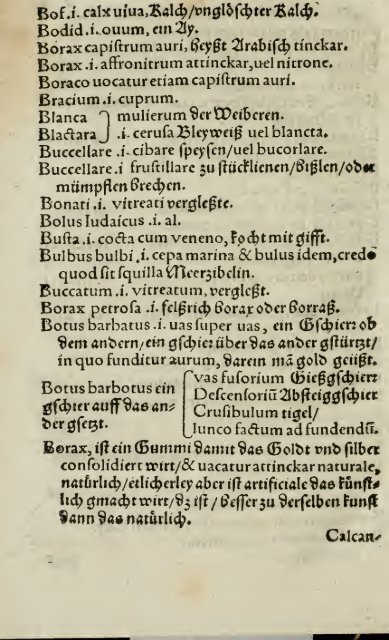 Bof .i. calx uiua, Kalch/vnglöschter Kalch.
Bodid .i. ouum, ein Ay.
Borax capistrum auri, heyßt Arabisch tinckar.
Borax .i. affronitrum attinckar, uel nitrone.
Boraco uocatur etiam capistrum auri.
Bracium .i. cuprum.
Blanca } mulierum der Weiberen.
Blactara } .i. cerusa Bleyweiß uel blancta.
Buccellare .i. cibare speysen/uel bucorlare.
Buccellare .i frustillare zu stücklienen/bißlen/oder
mümpflen brechen.
Bonati .i. vitreati vergleßte.
Bolus Iudaicus .i. al.
Busta .i. cocta cum veneno, kocht mit gifft.
Bulbus bulbi .i. cepa marina & bulus idem, credo
quod sit squilla Meerzibelin.
Buccatum .i. vitreatum, vergleßt.
Borax petrosa .i. felßrich borax oder borraß.
Botus barbatus .i. uas super uas, ein Gschierr ob
dem andern/ein gschierr über das ander gstürtzt/
in quo funditur aurum, darein mā gold geüßt.
Botus barbotus ein
gschirr auff das an-
der gsetzt.
{ vas fusorium Gießgschierr
Descensoriū Absteiggschierr
Crusibulum tigel/
Iunco factum ad fundendū.
Borax, ist ein Gummi damit das Goldt vnd silber
consolidiert wirt/& uacatur attinckar naturale,
natürlich/etlicherley aber ist artificiale das künst-
lich gmacht wirt/dz ist/besser zu derselben kunst
dann das natürlich.
Calcan-